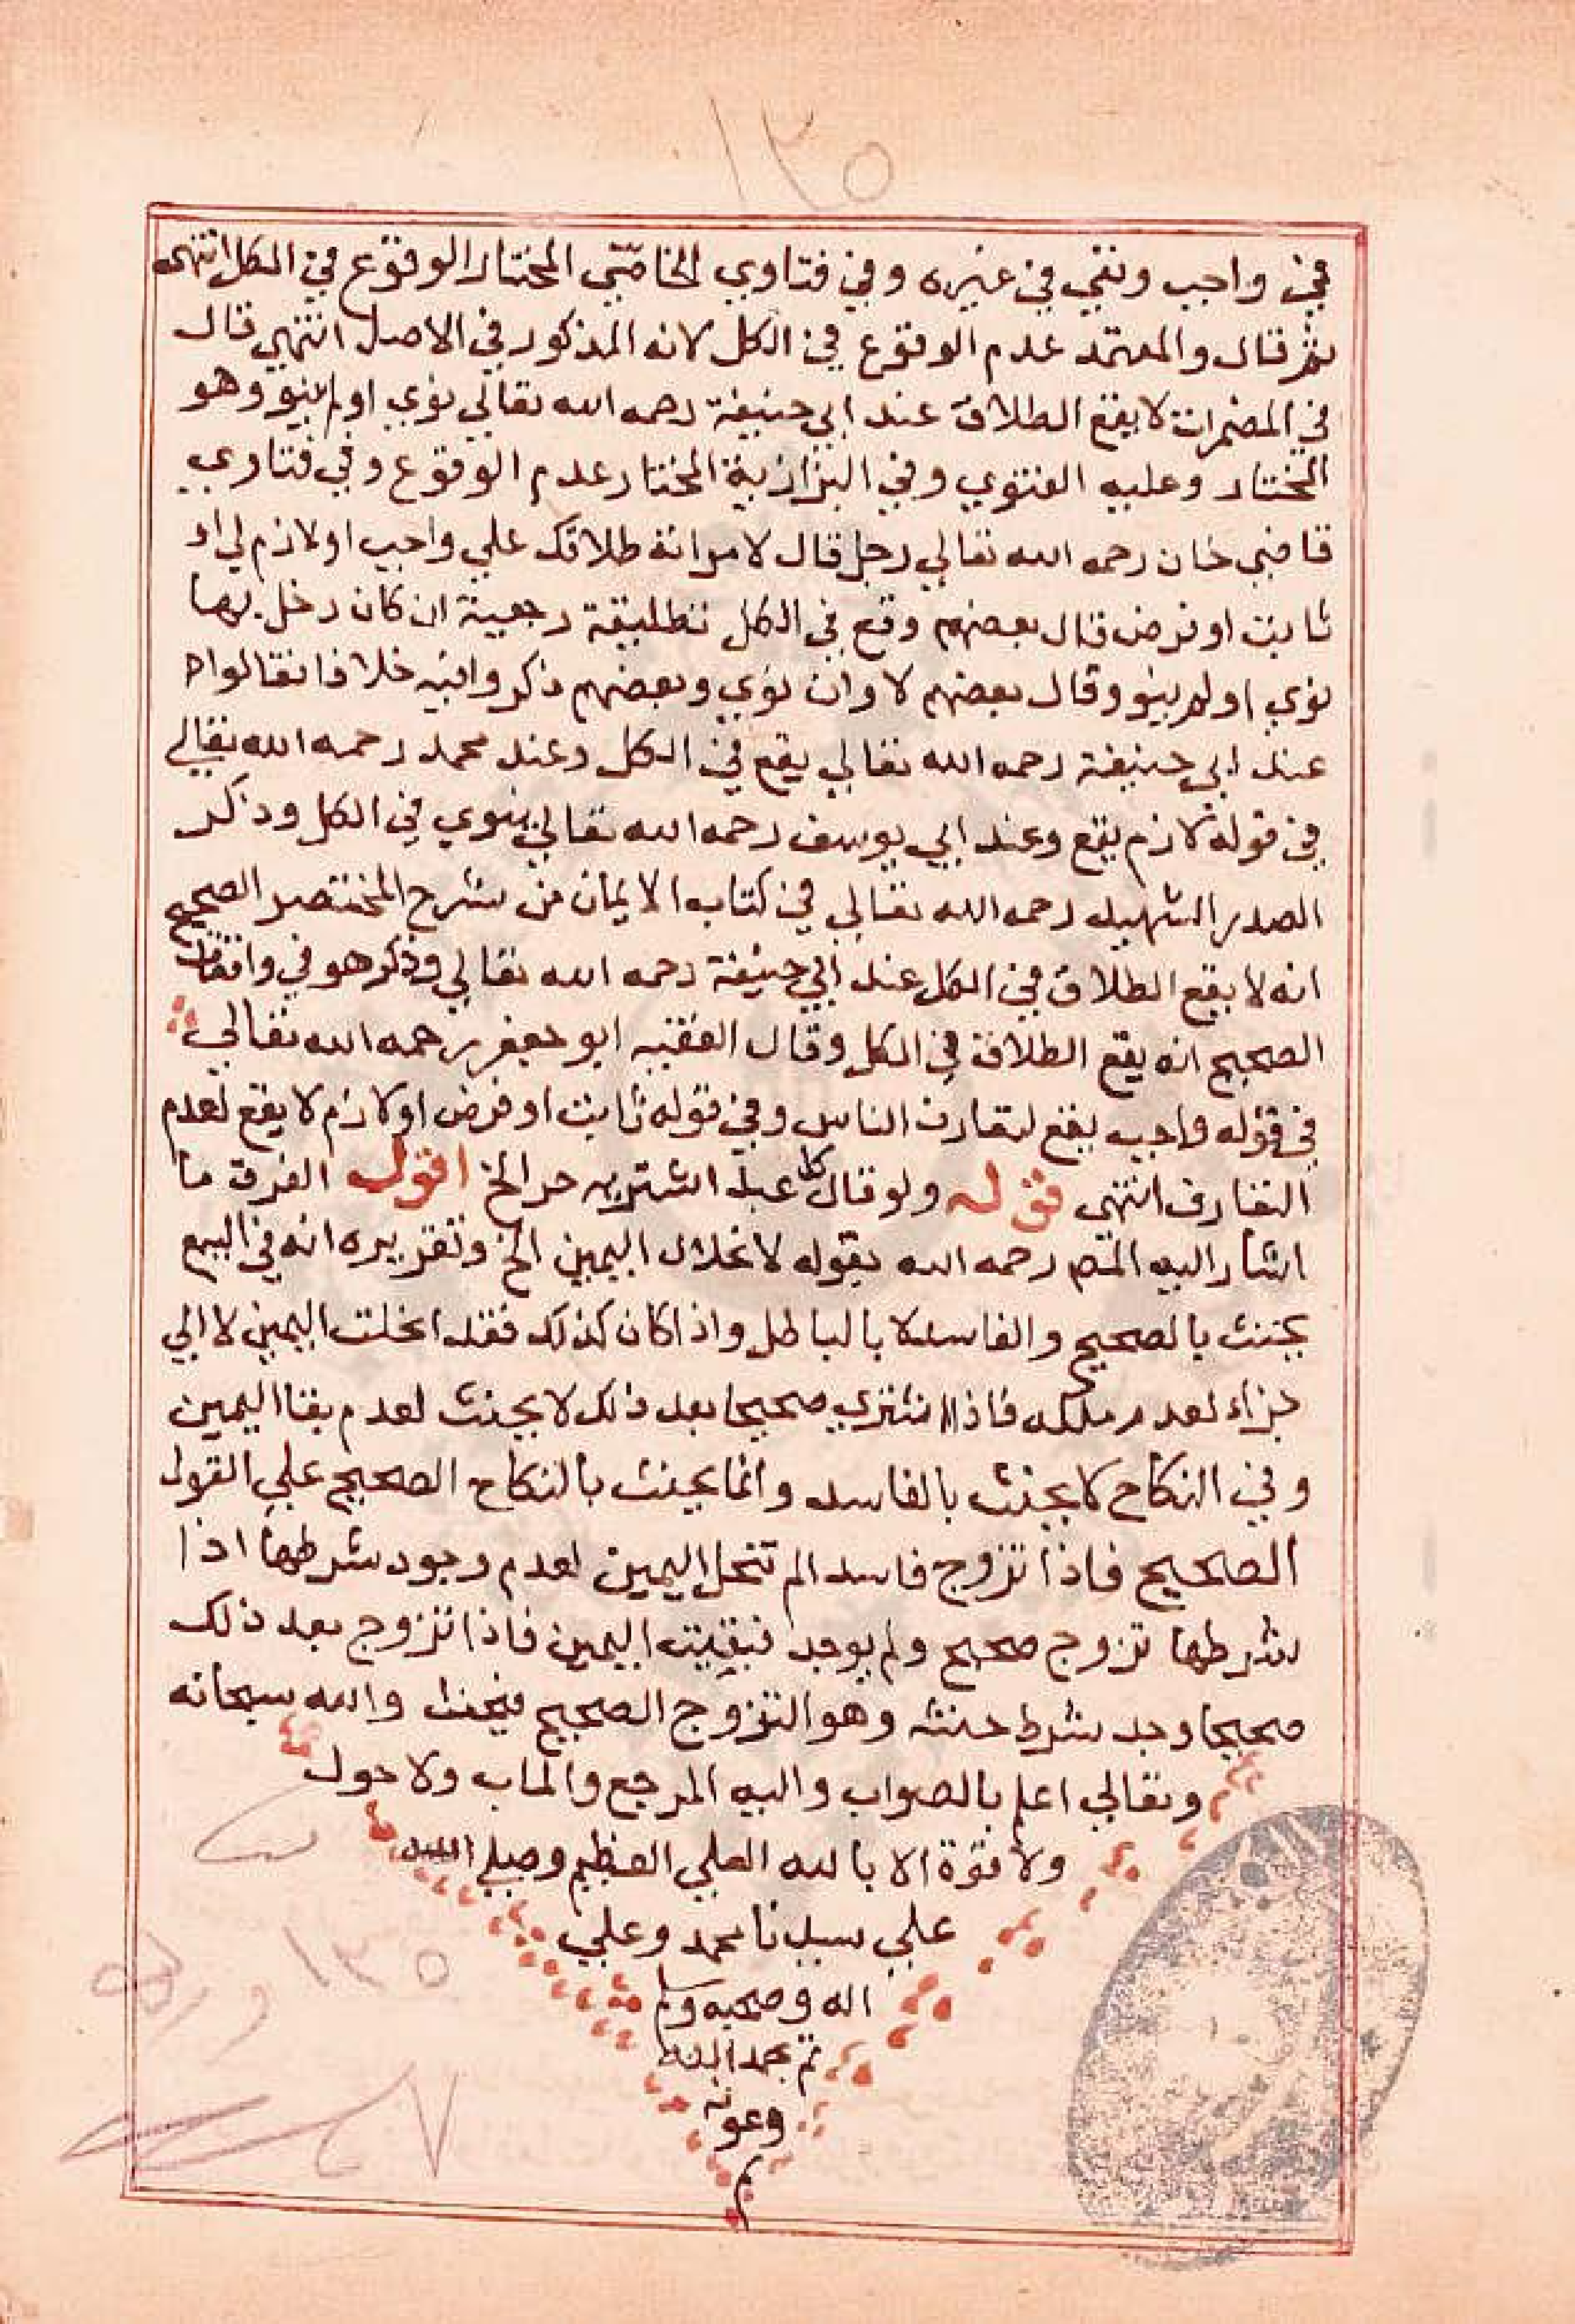 ١٣٥
في واجب ونفي في غيره وفي فتاوي الخاصي المختار الوقوع في الكل انتهى
ثم قال والمعتمد عدم الوقوع في الكل لانه المذكور في الاصل انتهي قال
في المضمرات لا يقع الطلاق عند ابي حنيفة رحمه الله تعالي نوي او لم ينو وهو
المختار وعليه الفتوي وفي البزازية المختار عدم الوقوع وفي فتاوي
قاضي خان رحمه الله تعالي رجل قال لامراته طلاقك علي واجب او لازم لي او
ثابت او فرض قال بعضهم وقع في الكل تطليقة رجعية ان كان دخل بها
نوي او لم ينو وقال بعضهم لا وان نوي وبعضهم ذكروا فيه خلافا فقالوا
عند ابي حنيفة رحمه الله تعالي يقع في الكل وعند محمد رحمه الله تعالي
في قوله لازم يقع وعند ابي يوسف رحمه الله تعالي ينوي في الكل وذكر
الصدر الشهيد رحمه الله تعالي في كتاب الايمان من شرح المختصر الصحيح
انه لا يقع الطلاق في الكل عند ابي حنيفة رحمه الله تعالي وذكر هو في واقعاته
الصحيح انه يقع الطلاق في الكل وقال الفقيه ابو جعفر رحمه الله تعالي
في قوله واجب يقع لتعارف الناس وفي قوله ثابت او فرض او لازم لا يقع لعدم
التعارف انتهى قوله ولو قال كل عبد اشتريه حر الخ اقول الفرق ما
اشار اليه المصم رحمه الله بقوله لانحلال اليمين الخ وتقريره انه في البيع
يحنث بالصحيح والفاسد لا بالباطل واذا كان كذلك فقد انحلت اليمين لا الي
جزاء لعدم ملكه فاذا اشتري صحيحا بعد ذلك لا يحنث لعدم بقا اليمين
وفي النكاح لا يحنث بالفاسد وانما يحنث بالنكاح الصحيح علي القول
الصحيح فاذا تزوج فاسدا لم تنحل اليمين لعدم وجود شرطها اذا
شرطها تزوج صحيح ولم يوجد فبقيت اليمين فاذا تزوج بعد ذلك
صحيحا وجد شرط حنثه وهو التزوج الصحيح فيحنث والله سبحانه
وتعالي اعلم بالصواب واليه المرجع والماب ولا حول
ولا قوة الا بالله العلي العظيم وصلي الله
علي سيدنا محمد وعلي
اله وصحبه وسلم
تم بحمد الله
وعونه
م
١٣٥